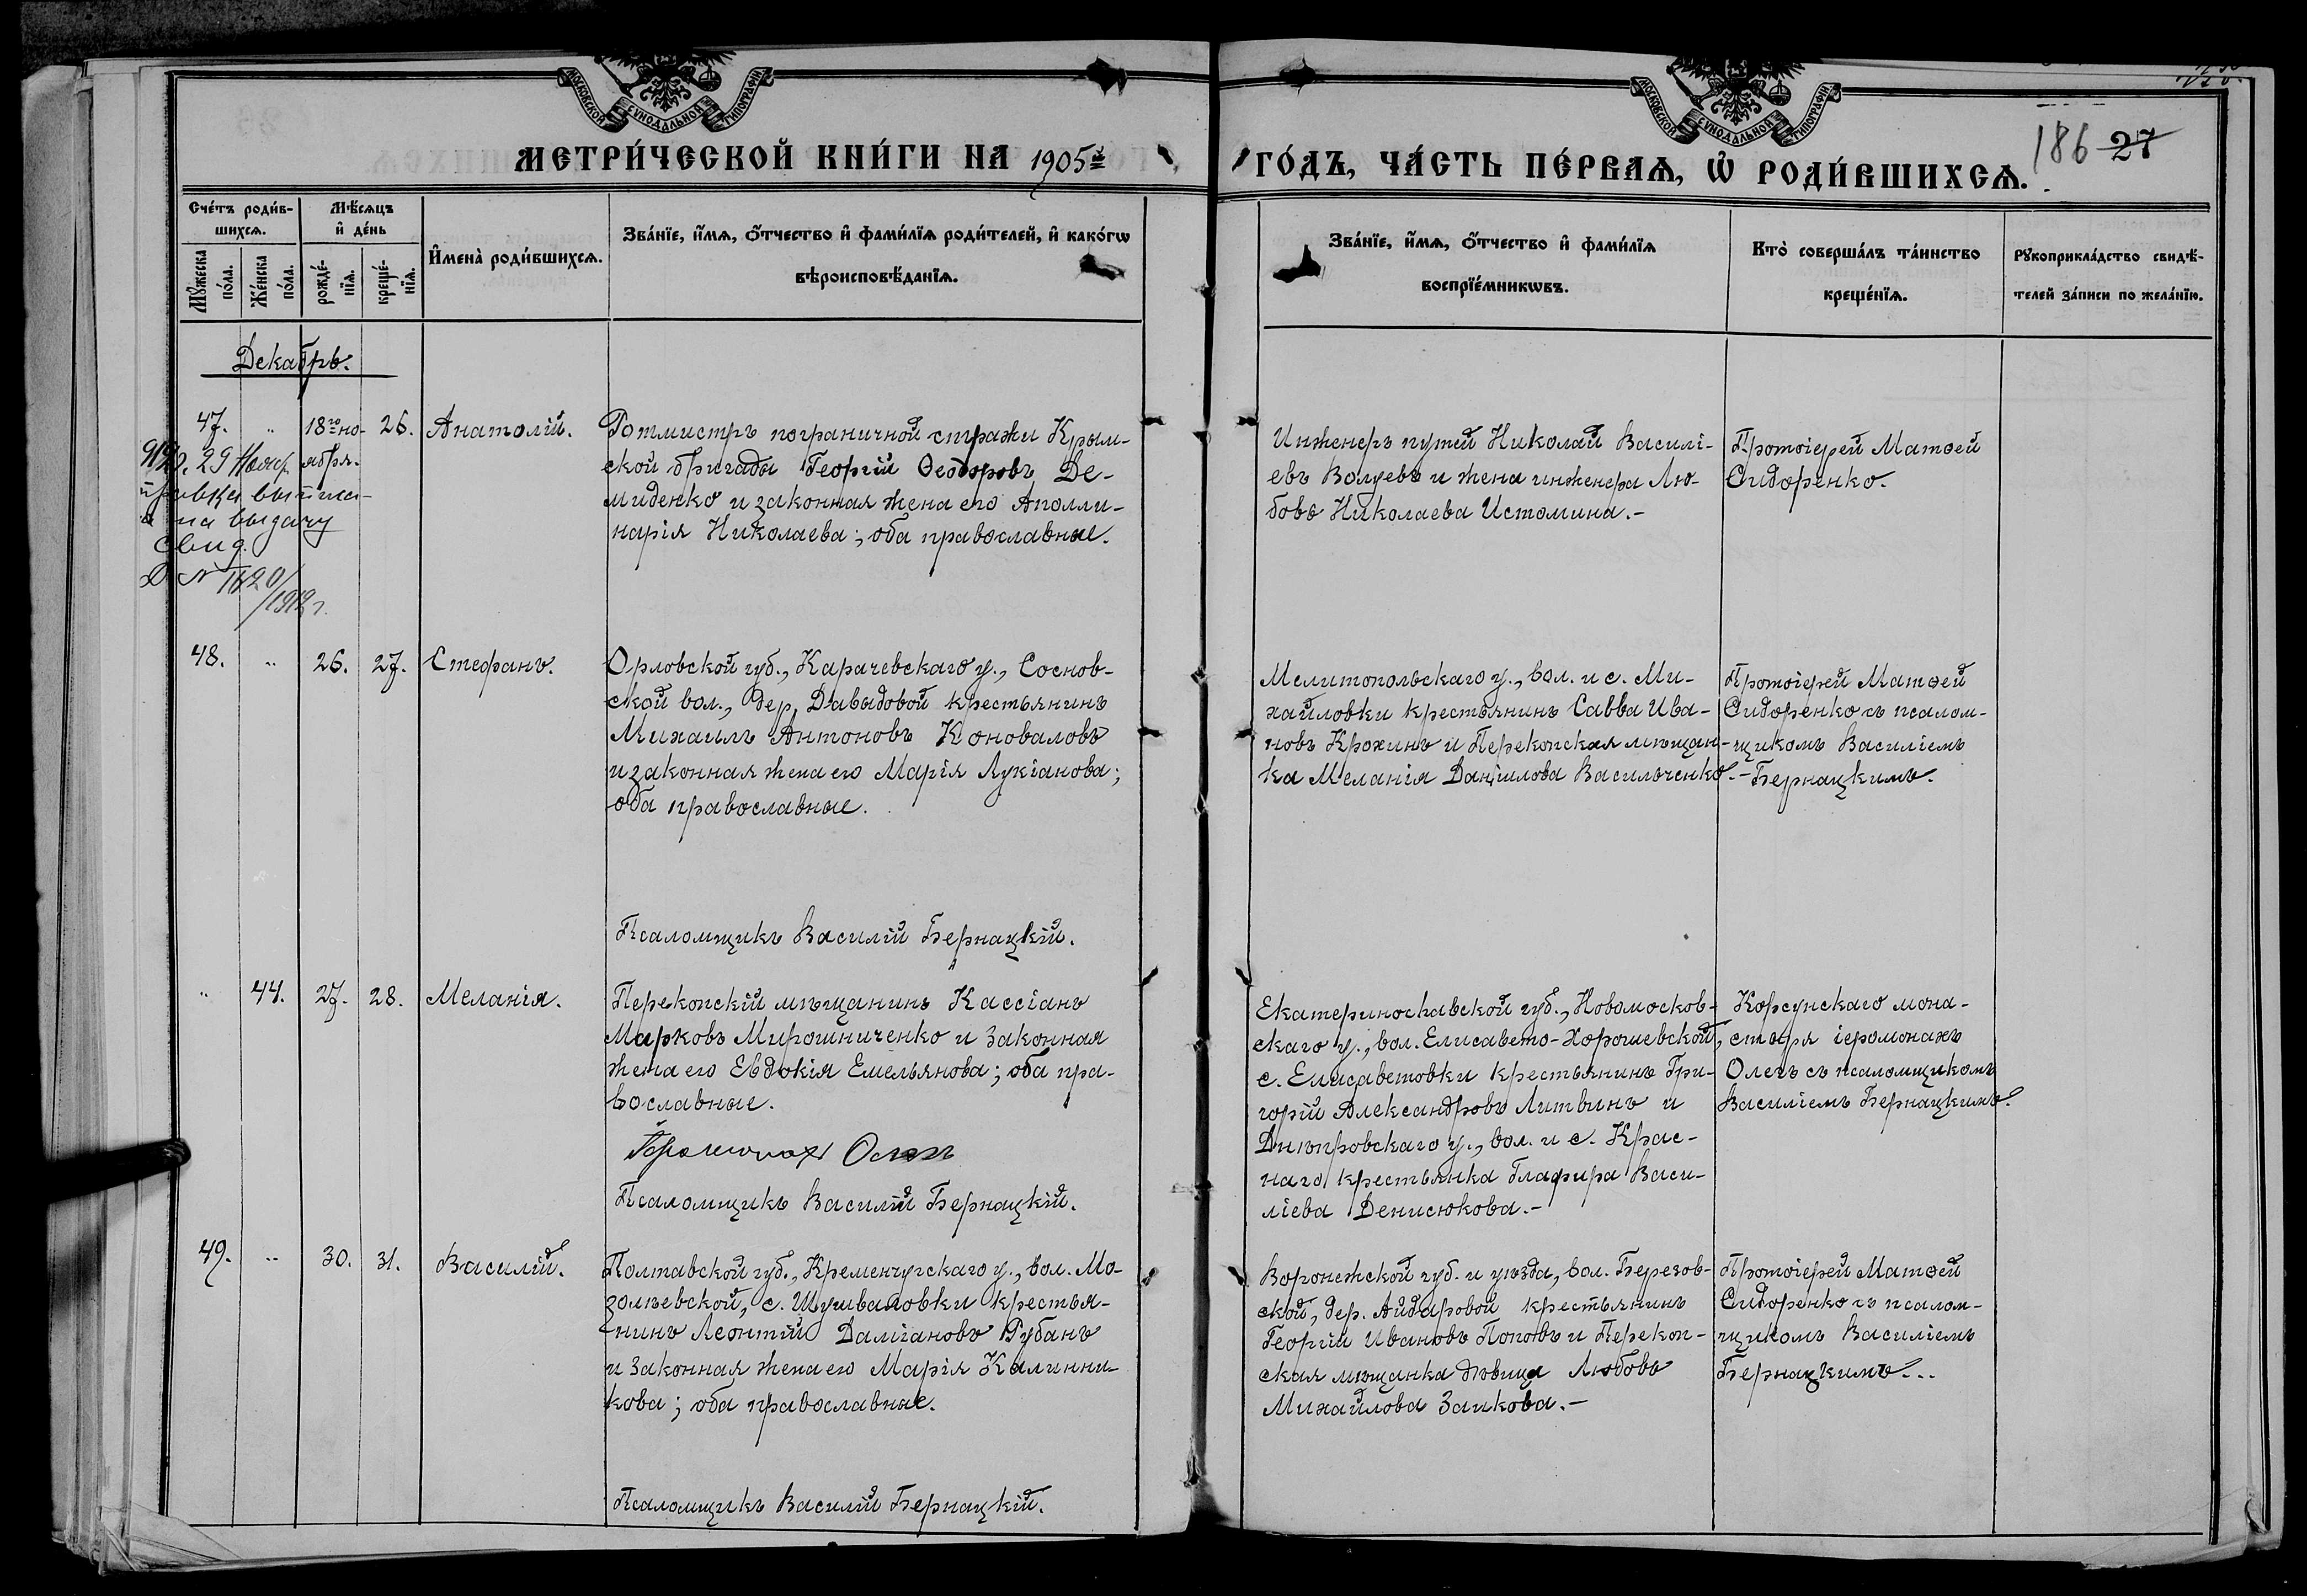 МОСКОВСКОЙ СѴНОДАЛЬНОЙ ТИПОГРАФІИ
МОСКОВСКОЙ СѴНОДАЛЬНОЙ ТИПОГРАФІИ
МЕТРИ́ЧЕСКОЙ КНИ́ГИ НА 1905й
ГО́ДЪ, ЧА́СТЬ ПЕ́РВАѦ, Ѡ҆ РОДИ́ВШИХСѦ.
186 27
Сче́тъ роди́в-
шихсѧ.
Мѣ́сѧцъ
и҆ де́нь
Мꙋ́жеска
по́ла.
Же́нска
по́ла.
рожде́-
нїѧ.
креще́-
нїѧ.
И҆мена̀ роди́вшихсѧ.
Зва́нїе, и҆́мѧ, ѻ҆́тчество и҆ фами́лїѧ роди́телей, и҆ како́гѡ
вѣроисповѣ́данїѧ.
Зва́нїе, и҆́мѧ, ѻ҆́тчество и҆ фами́лїѧ
воспрїе́мникѡвъ.
Кто̀ соверша́лъ та́инство
креще́нїѧ.
Рꙋкоприкла́дство свидѣ́-
телей за́писи по жела́нїю.
Декабрь.
47. „ 18го но-
ября.
26. Анатолій.
29 Нояр.
на выдачу
свид.
№ 1620/
/1912 г.
Ротмистръ пограничной стражи Крым-
ской бригады Георгій Ѳеодоровъ Де-
миденко и законная жена его Аполли-
нарія Николаева; оба православные.
Инженеръ путей Николай Василі-
евъ Волуевъ и жена инженера Лю-
бовь Николаева Истомина.-
Протоіерей Матѳей
Сидоренко.
48. „ 26. 27. Стефанъ.
Орловской губ., Карачевскаго у., Соснов-
ской вол., дер. Давыдовой крестьянинъ
Михаилъ Антоновъ Коноваловъ
и законная жена его Марія Лукіанова;
оба православные.
Псаломщикъ Василій Бернацкій.
Мелитопольскаго у., вол. и с. Ми-
хайловки крестьянинъ Савва Ива-
новъ Крохинъ и Перекопская мѣщан-
ка Меланія Даніилова Васильченко.-
Протоіерей Матѳей
Сидоренко съ псалом-
щикомъ Василіемъ
Бернацкимъ.
„ 44. 27. 28. Меланія.
Перекопскій мѣщанинъ Кассіанъ
Марковъ Мирошниченко и законная
жена его Евдокія Емельянова; оба пра-
вославные.
Іеромонахъ Олегъ
Псаломщикъ Василій Бернацкій.
Екатеринославской губ., Новомосков-
скаго у., вол. Елисавето-Хорошевской,
с. Елисаветовки крестьянинъ Гри-
горій Александровъ Литвинъ и
Днѣпровскаго у., вол. и с. Крас-
наго крестьянка Глафира Васи-
ліева Денисюкова.-
Корсунскаго мона-
стыря іеромонахъ
Олегъ съ псаломщикомъ
Василіемъ Бернацкимъ.
49. „ 30. 31. Василій.
Полтавской губ., Кременчугскаго у., вол. Мо-
золѣевской, с. Шушваловки крестья-
нинъ Леонтій Даміановъ Рубанъ
и законная жена его Марія Калинни-
кова; оба православные.
Псаломщикъ Василій Бернацкій.
Воронежской губ. и уѣзда, вол. Березов-
ской, дер. Айдаровой крестьянинъ
Георгій Ивановъ Поповъ и Перекоп-
ская мѣщанка дѣвица Любовь
Михайлова Заикова.-
Протоіерей Матѳей
Сидоренко съ псалом-
щикомъ Василіемъ
Бернацкимъ...